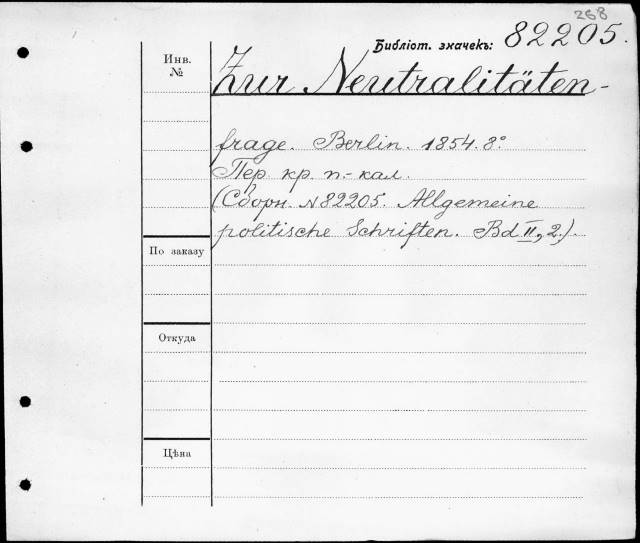 268
Библіот. значекъ: 82205.
Инв.
№
Zur Neutralitäten-
frage. Berlin. 1854. 8°
Пер. кр. п.-кал.
(Сборн. №82205. Allgemeine
politische Schriften. Bd II, 2.).
По заказу
Откуда
Цѣна